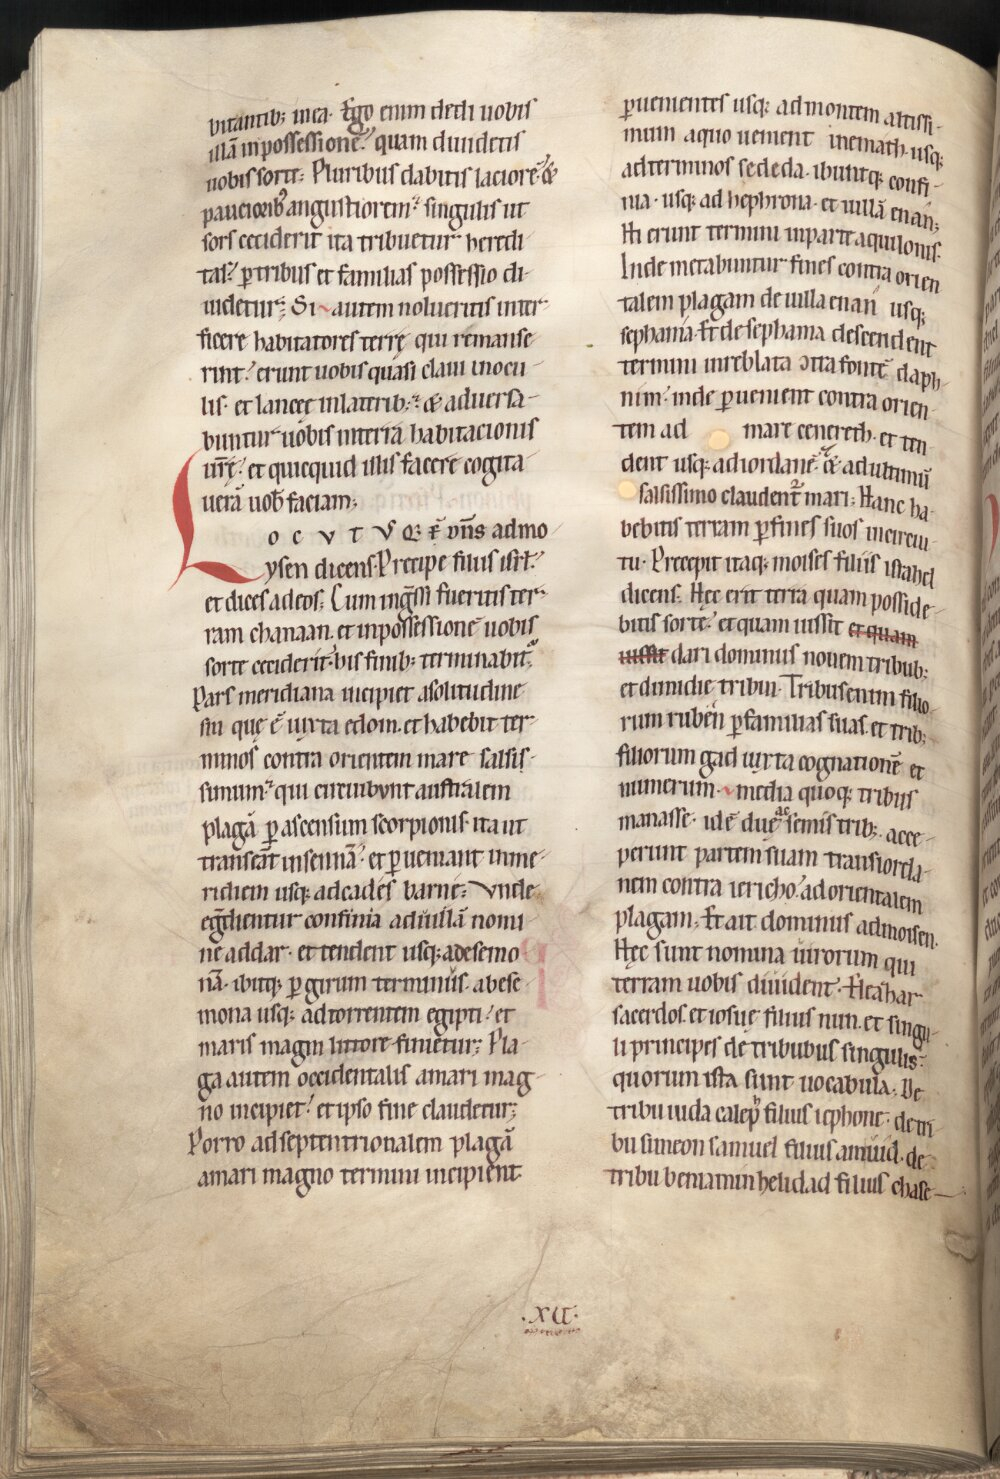 bitantib; in ea. Ego enim dedi uobis
illā in possessionē. quam diuidetis
uobis sorte. Pluribus dabitis laciorē. &
paucioribꝰ angustiorem. singulis ut
sors ceciderit ita tribuetur heredi-
tas. ꝑ tribus et familias possessio di-
uidetur; Si autem nolueritis inter-
ficere habitatores terrę qui remanse
rint. erunt uobis quasi claui in ocu-
lis. et lancęę in laterib;. & aduersa-
buntur uobis in terra habitacionis
ur̄ę. et quicquid illis facere cogita-
uerā uob̄ faciam;
LOCVTVSQ; ē dn̄s ad mo-
ysen dicens. Precipe filiis isrl̄.
et dices ad eos; Cum ingr̄ssi fueritis ter-
ram chanaan. et in possessionē uobis
sorte ceciderit. his finib; terminabit̄.
Pars meridiana incipiet a solitudine
sin que ē iuxta edom. et habebit ter-
minos contra orientem mare salsis-
simum. qui circuibunt australem
plagā ꝑ ascensum scorpionis. ita ut
transeāt in sennā. et ꝑueniant in me-
ridiem usq; ad cades barne; Vnde
egr̄dientur confinia ad uillā nomi-
nē addar. et tendent usq; ad esemo
nā. ibitq; ꝑ girum terminus. ab ese-
mona usq; ad torrentem egipti. et
maris magni littore finietur; Pla-
ga autem occidentalis a mari mag-
no incipiet. et ipso fine claudetur;
Porro ad septentrionalem plagā
a mari magno termini incipient
ꝑuenientes usq; ad montem altissi-
mum a quo uenient in emath. usq;
ad terminos sededa. ibuntq; confi-
nia. usq; ad hephrona. et uillā enan;
Hi erunt termini in parte aquilonis.
Inde metabuntur fines contra orien
talem plagam de uilla enan usq;
sephama. Et de sephama descendent
termini in reblata ɔtra fontē daph-
nim. inde ꝑuenient contra orien-
tem ad mare cenereth. et ten
dent usq; ad iordanē. & ad ultimū
salsissimo claudent̄ mari; Hanc ha-
bebitis terram ꝑ fines suos in circui-
tu. Precepit itaq; moises filiis israhel
dicens. Hęc erit terra quam posside-
bitis sorte. et quam iussit et quam
iussit dari dominus nouem tribub;
et dimidię tribui. Tribus enim filio-
rum ruben ꝑ familias suas. et trib;
filiorum gad iuxta cognationē et
numerum. media quoq; tribus
manasse. idē duę ac semis trib;. acce-
perunt partem suam trans iorda-
nem contra iericho. ad orientalem
plagam; Et ait dominus ad moisen.
Hęc sunt nomina uirorum qui
terram uobis diuident. Eleazar
sacerdos. et iosuę filius nun. et singu-
li principes de tribubus singulis.
quorum ista sunt uocabula. De
tribu iuda caleph filius iephone. de tri
bu simeon samuel filius amiud. de
tribu beniamin helidad filius chase-
.XU.